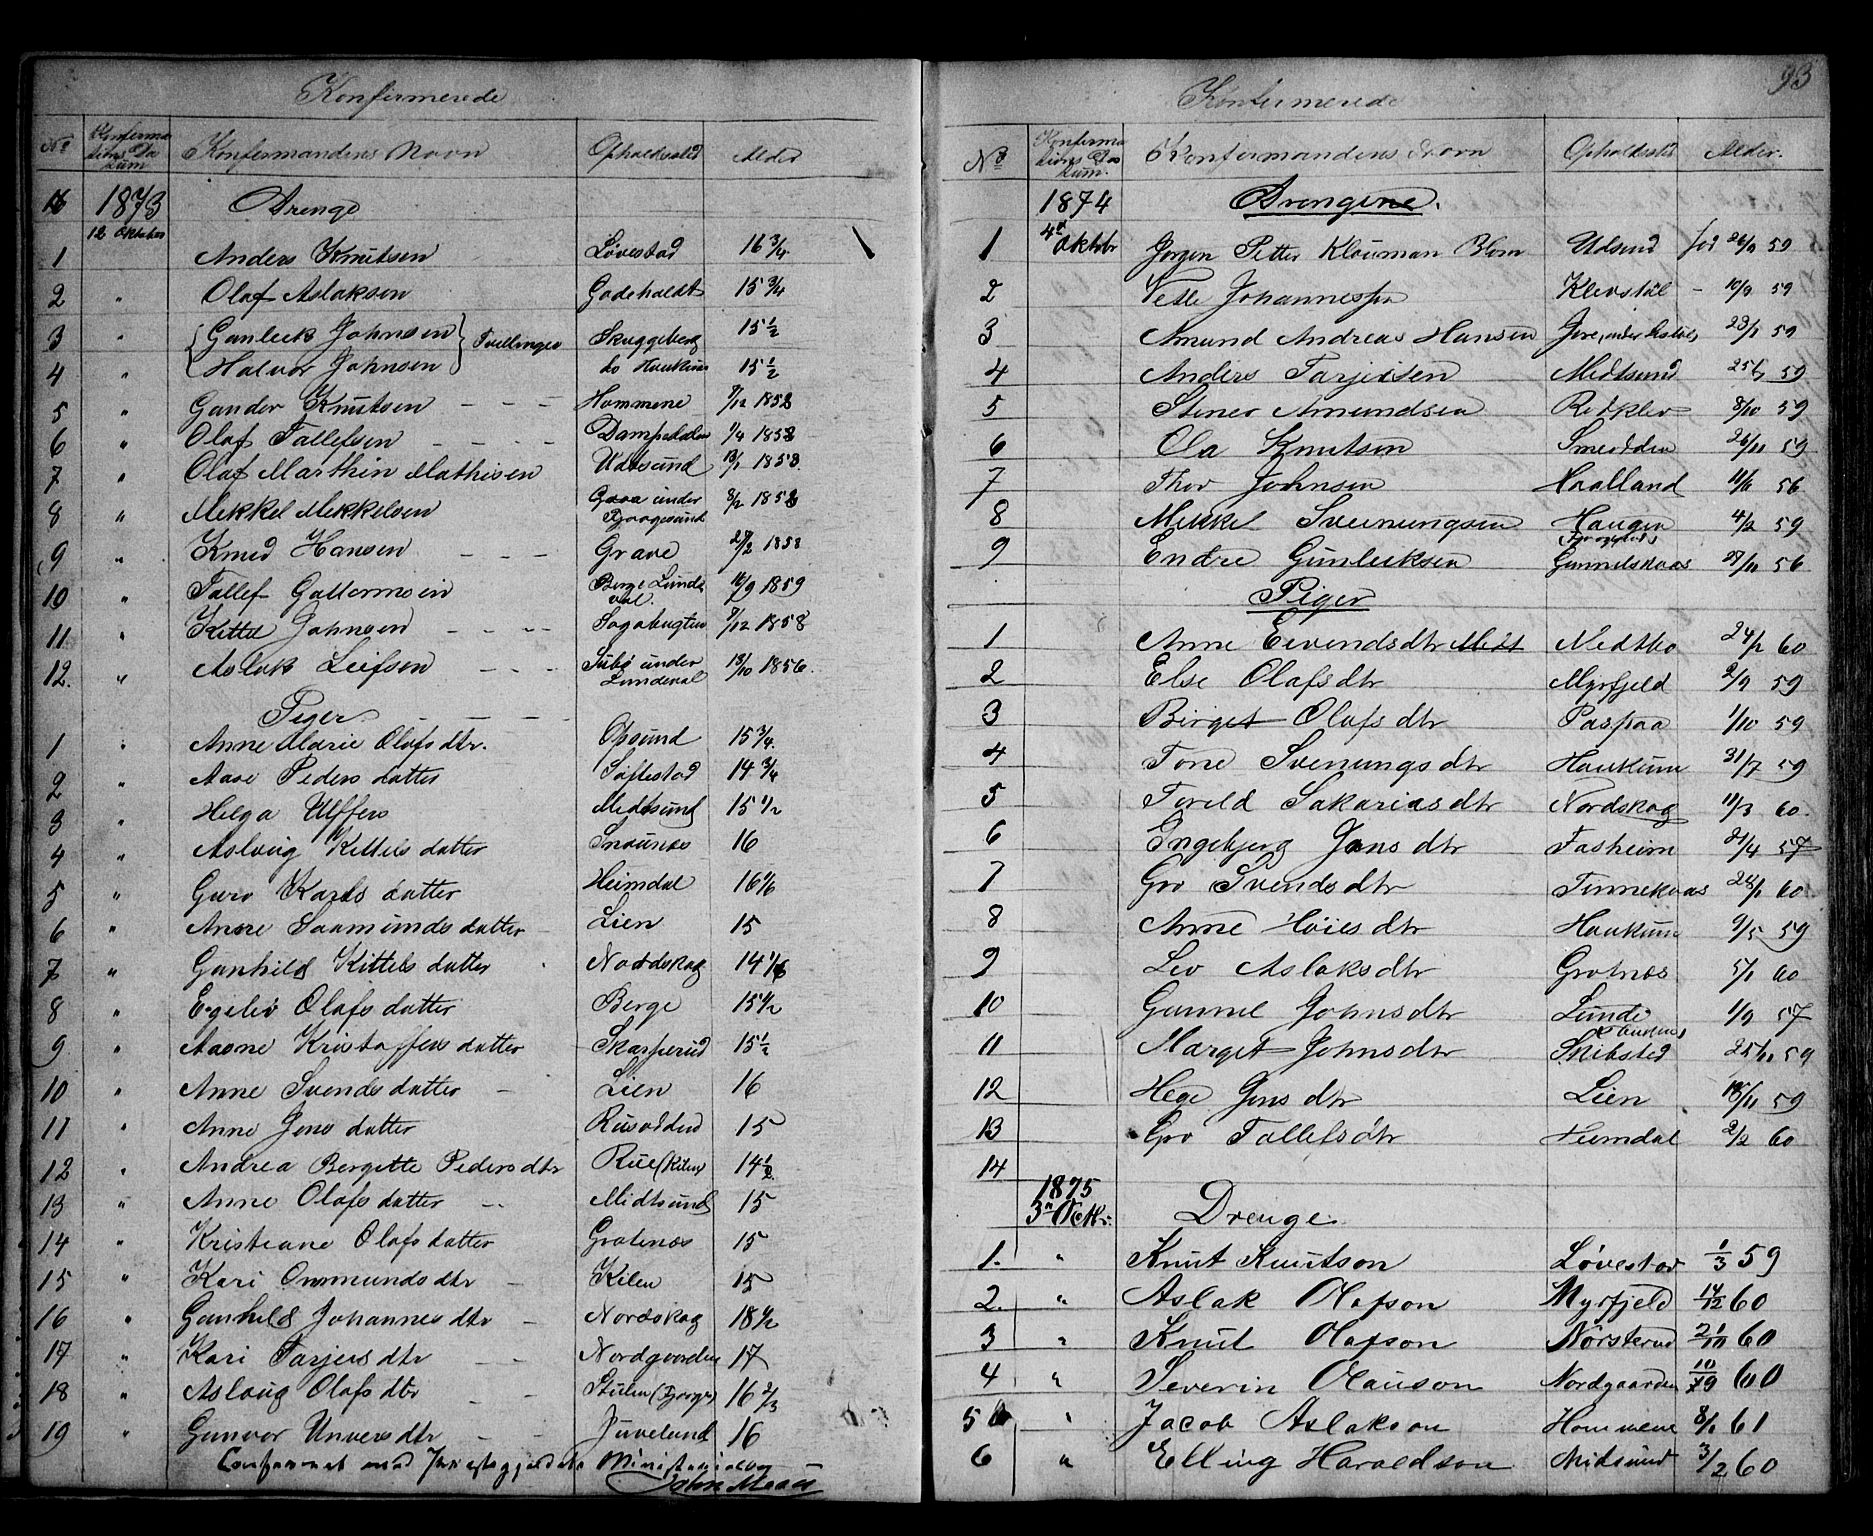 Konfirmerede
No Konfirmations Datum Konfirmandens Navn Opholdssted Alder
1873 Drenge
12 Oktober
1 Anders Knutsen Løvestad 16 3/4
2 " Olaf Aslaksen Godeholdt 15 3/4
3 " Gunleek Johnsen } Tvillinger Skuggeberg 15 1/2
4 " Halvor Johnsen } do Haukum 15 1/2
5 " Gunder Knutsen Hommene 7/12 1858
6 " Olaf Tallefsen Dampedalen 1/4 1858
7 " Olaf Marthin Mathisen Udtsund 13/1 1858
8 " Mikkel Mikkelsen under 8/2 1858
9 " Knud Hansen Grave 28/2 1858
10 " Tallef Guttormsen Berge Lundeval. 16/9 1859
11 " Kittil Johnsen Sagabugten 7/12 1858
12. " Aslak Leifsen under Lundeval 13/10 1856.
Piger
1 " Anne Marie Olafsdtr. Opsund 15 3/4
2 " Aase Peders datter Søftestad 14 3/4
3 " Helga Ulffers Midtsund 15 1/2
4 " Aslaug Kittils datter Snounæs 16
5 " Guro Karls datter Heimdal 16 1/6
6 " Anne Saamunds datter Lien 15
7 " Gunhild Kittels datter Nordskog 14 1/6
8 " Egeleiv Olafs datter Berge 15 1/2
9 " Aasne Kristoffers datter Skarperud 15 1/2
10 " Anne Svends datter Lien 16
11 " Anne Jens datter Rusodden 15
12 " Andrea Bergitte Pedersdtr Rue (Kilen) 14 1/2
13 " Anne Olafs datter Midtsund 15
14 " Kristiane Olafs datter Grotnæs 15
15 " Kari Ommundsdtr Kilen 15
16 " Gunhild Johannesdtr Nordskog 18 1/2
17 " Kari Tarjeisdtr Nordgaarden 17
18 " Aslaug Olafsdtr Stulen 16 2/3
19 " Gunvor Unversdtr Juvelund 16
Conferered med Præstegjeldets Ministerialbog
John Maae
93
Konfirmerede
No Konfirmations Datum. Konfirmandens Navn Opholdssted Alder.
1874 Drengene.
4de Oktobr
1 Jørgen Petter Klouman Blom Udsund fød 26/9 59
2 Vetle Johannessen Klevstul - 10/9 59
3 Amund Andreas Hansen 23/1 59
4 Anders Tarjeisen Midtsund 25/7 59
5 Stener Amundsen Rødklev 8/10 59
6 Ola Knutsen Smeodden 26/11 59
7 Thor Johnsen Haalland 11/11 56
8 Mikkel Sveinungsen Haugen 4/2 59
9 Endre Gunleiksen Gunnulskaas 28/11 56
Piger
1 Anne Eivendsdtr Midtbø 24/2 60
2 Else Olafsdtr Myrfjeld 2/9 59
3 Birget Olafsdtr Paspaa 1/10 59
4 Tone Svenungsdtr Haukum 31/7 59
5 Torild Sakariasdtr Nordskog 11/3 60.
6 Ingebjorg Jonsdtr Fasheim 21/4 57
7 Gro Svendsdtr Tinnekaas 28/1 60
8 Anne Høiesdtr Haukum 9/5 59
9 Liv Aslaksdtr Grotnæs 5/1 60
10 Gunnil Johnsdtr Lunde 1/9 57
11 Margit Johnsdtr Skibsted 25/11 59
12 Hege Jensdtr Lien 18/11 59
13 Gro Tallefsdtr Heimdal 2/2 60
14
1875
3. Octbr. Drenge.
1. " Knut Knutson Løvestad 1/3 59
2. " Aslak Olafson Myrfjeld 14/12 60
3 " Knut Olafson Nørsterud 21/10 60
4 " Severin Olauson Nordgaarden 10/10 60
5 " Jacob Aslakson Hommene 8/1 61
6 " Elling Haraldson Midsund 3/2 60